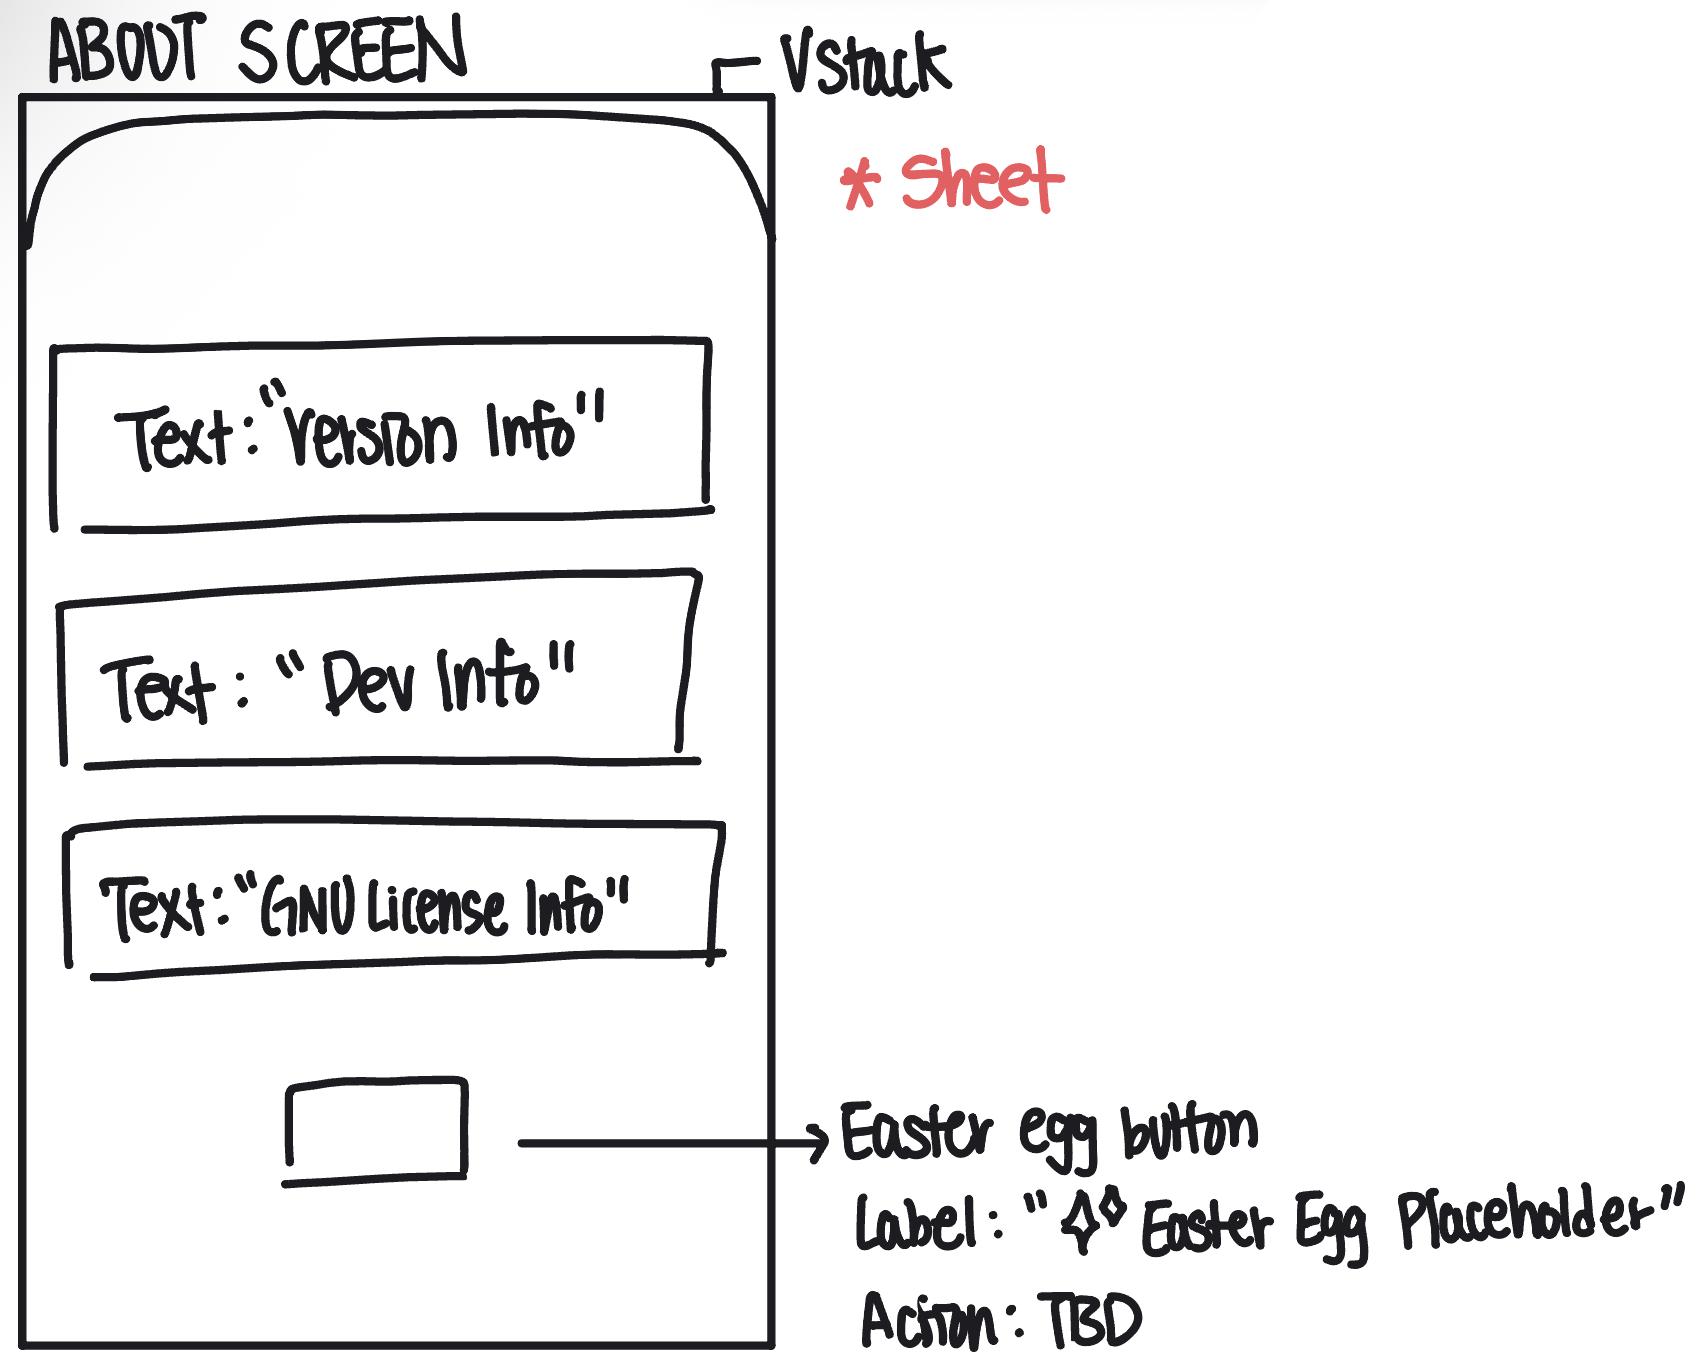 ABOUT SCREEN
VStack
* Sheet
Text: "Version Info"
Text: "Dev Info"
Text: "GNU License Info"
Easter egg button
Label: "✨ Easter Egg Placeholder"
Action: TBD